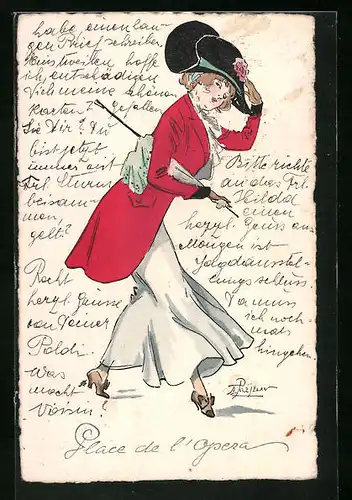 habe, einen lan-
gen Brief schreiben
Einstweilen hoffe
ich, entschädigen
Dich meine schönen
Karten? gefallen
Sie Dir? Du
bist jetzt
immer mit
Frl. Sturm
beisam-
men,
gelt?
Recht
herzl. Grüsse
von Deiner
Poldi.
Was
macht
Bitte richte
an das Frl.
Hilda
einen
herzl. Gruss aus
Morgen ist
Jagdausstel-
lungsschluss.
Da muss
ich noch-
mals
hingehen.
Place de l'Opera